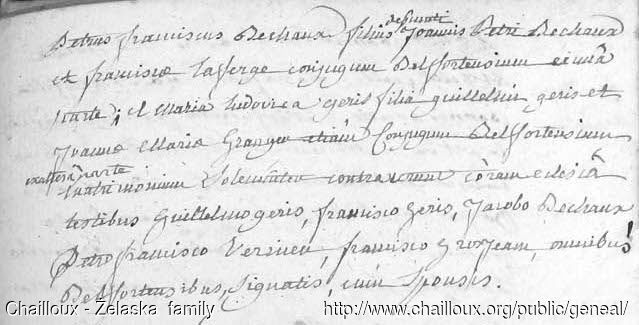 defuncti
Petrus franciscus Bechaux filius Joannis Petri Bechaux
et franciscæ laferge conjugum Belfortensium ex unâ
parte; et Maria ludovica geris filia guillelmi geris et
Joannæ Mariæ Granger etiam Conjugum Belfortensium
ex alterâ parte
Matrimonium Solemniter contraxerunt côram eclesiâ
testibus Guillelmo geris, francisco geris, Jacobo Bechaux
Petro francisco francisco Grosjean, omnibus
Belfortensibus, Signatis, cum Sponsis.
Chailloux - Zelaska family http://www.chailloux.org/public/geneal/